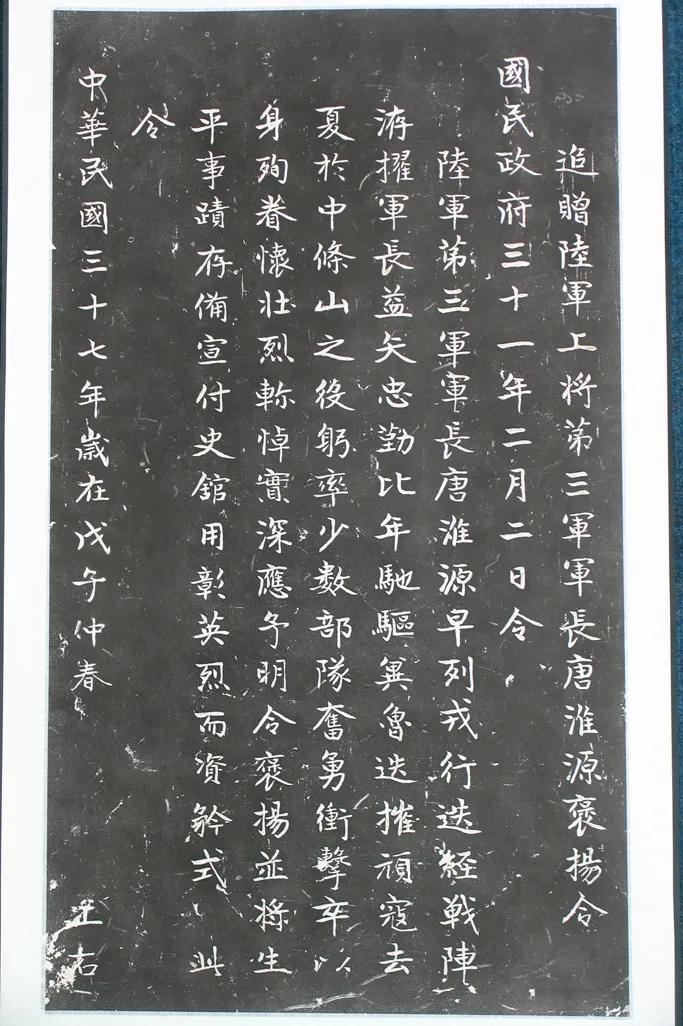 追贈陸軍上将第三軍軍長唐淮源褒揚令
國民政府三十一年二月二日令
陸軍第三軍軍長唐淮源早列戎行迭経戦陣
洊擢軍長益矢忠勤比年馳驅兾魯迭摧頑寇去
夏於中條山之役躬率少数部隊奮勇衝擊卒以
身殉眷懷壮烈軫悼實深應予明令褒揚並将生
平事蹟存備宣付史舘用彰英烈而資矜式此
令
中華民國三十七年嵗在戊子仲春
右